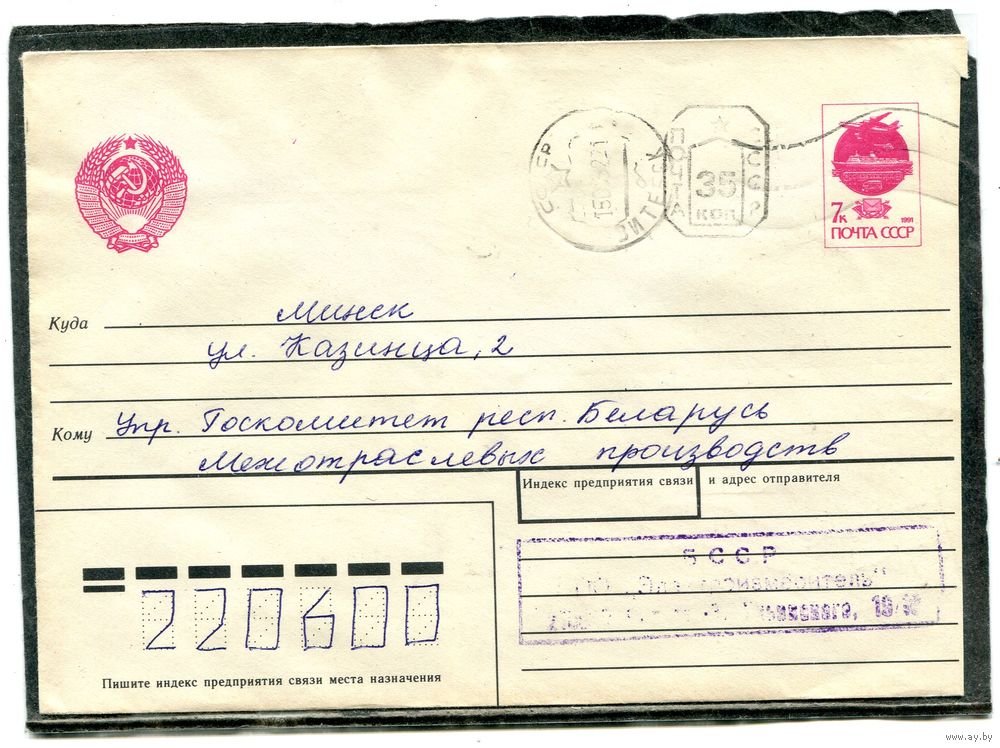 ПОЧТА
35
КОП
7к
1991
ПОЧТА СССР
Куда Минск
ул. Казинца, 2
Кому Упр. Госкомитет респ. Беларусь
Межотраслевых производств
Индекс предприятия связи и адрес отправителя
БССР
220600
Пишите индекс предприятия связи места назначения
www.ay.by